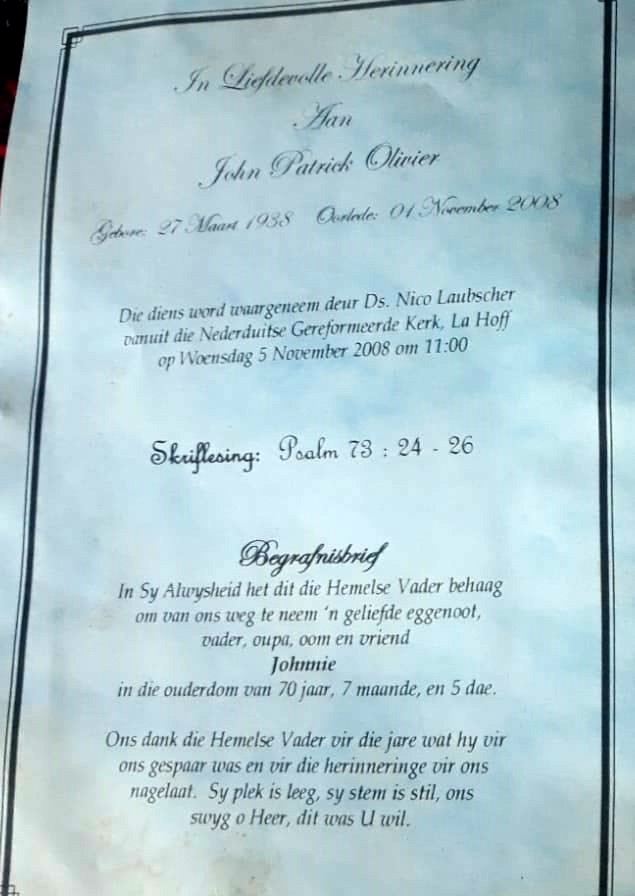 In Liefdevolle Herinnering
Aan
John Patrick Olivier
Gebore: 27 Maart 1938 Oorlede: 01 November 2008
Die diens word waargeneem deur Ds. Nico Laubscher
vanuit die Nederduitse Gereformeerde Kerk, La Hoff
op Woensdag 5 November 2008 om 11:00
Skriflesing: Psalm 73 : 24 - 26
Begrafnisbrief
In Sy Alwysheid het dit die Hemelse Vader behaag
om van ons weg te neem 'n geliefde eggenoot,
vader, oupa, oom en vriend
Johnnie
in die ouderdom van 70 jaar, 7 maande, en 5 dae.
Ons dank die Hemelse Vader vir die jare wat hy vir
ons gespaar was en vir die herinneringe vir ons
nagelaat. Sy plek is leeg, sy stem is stil, ons
swyg o Heer, dit was U wil.